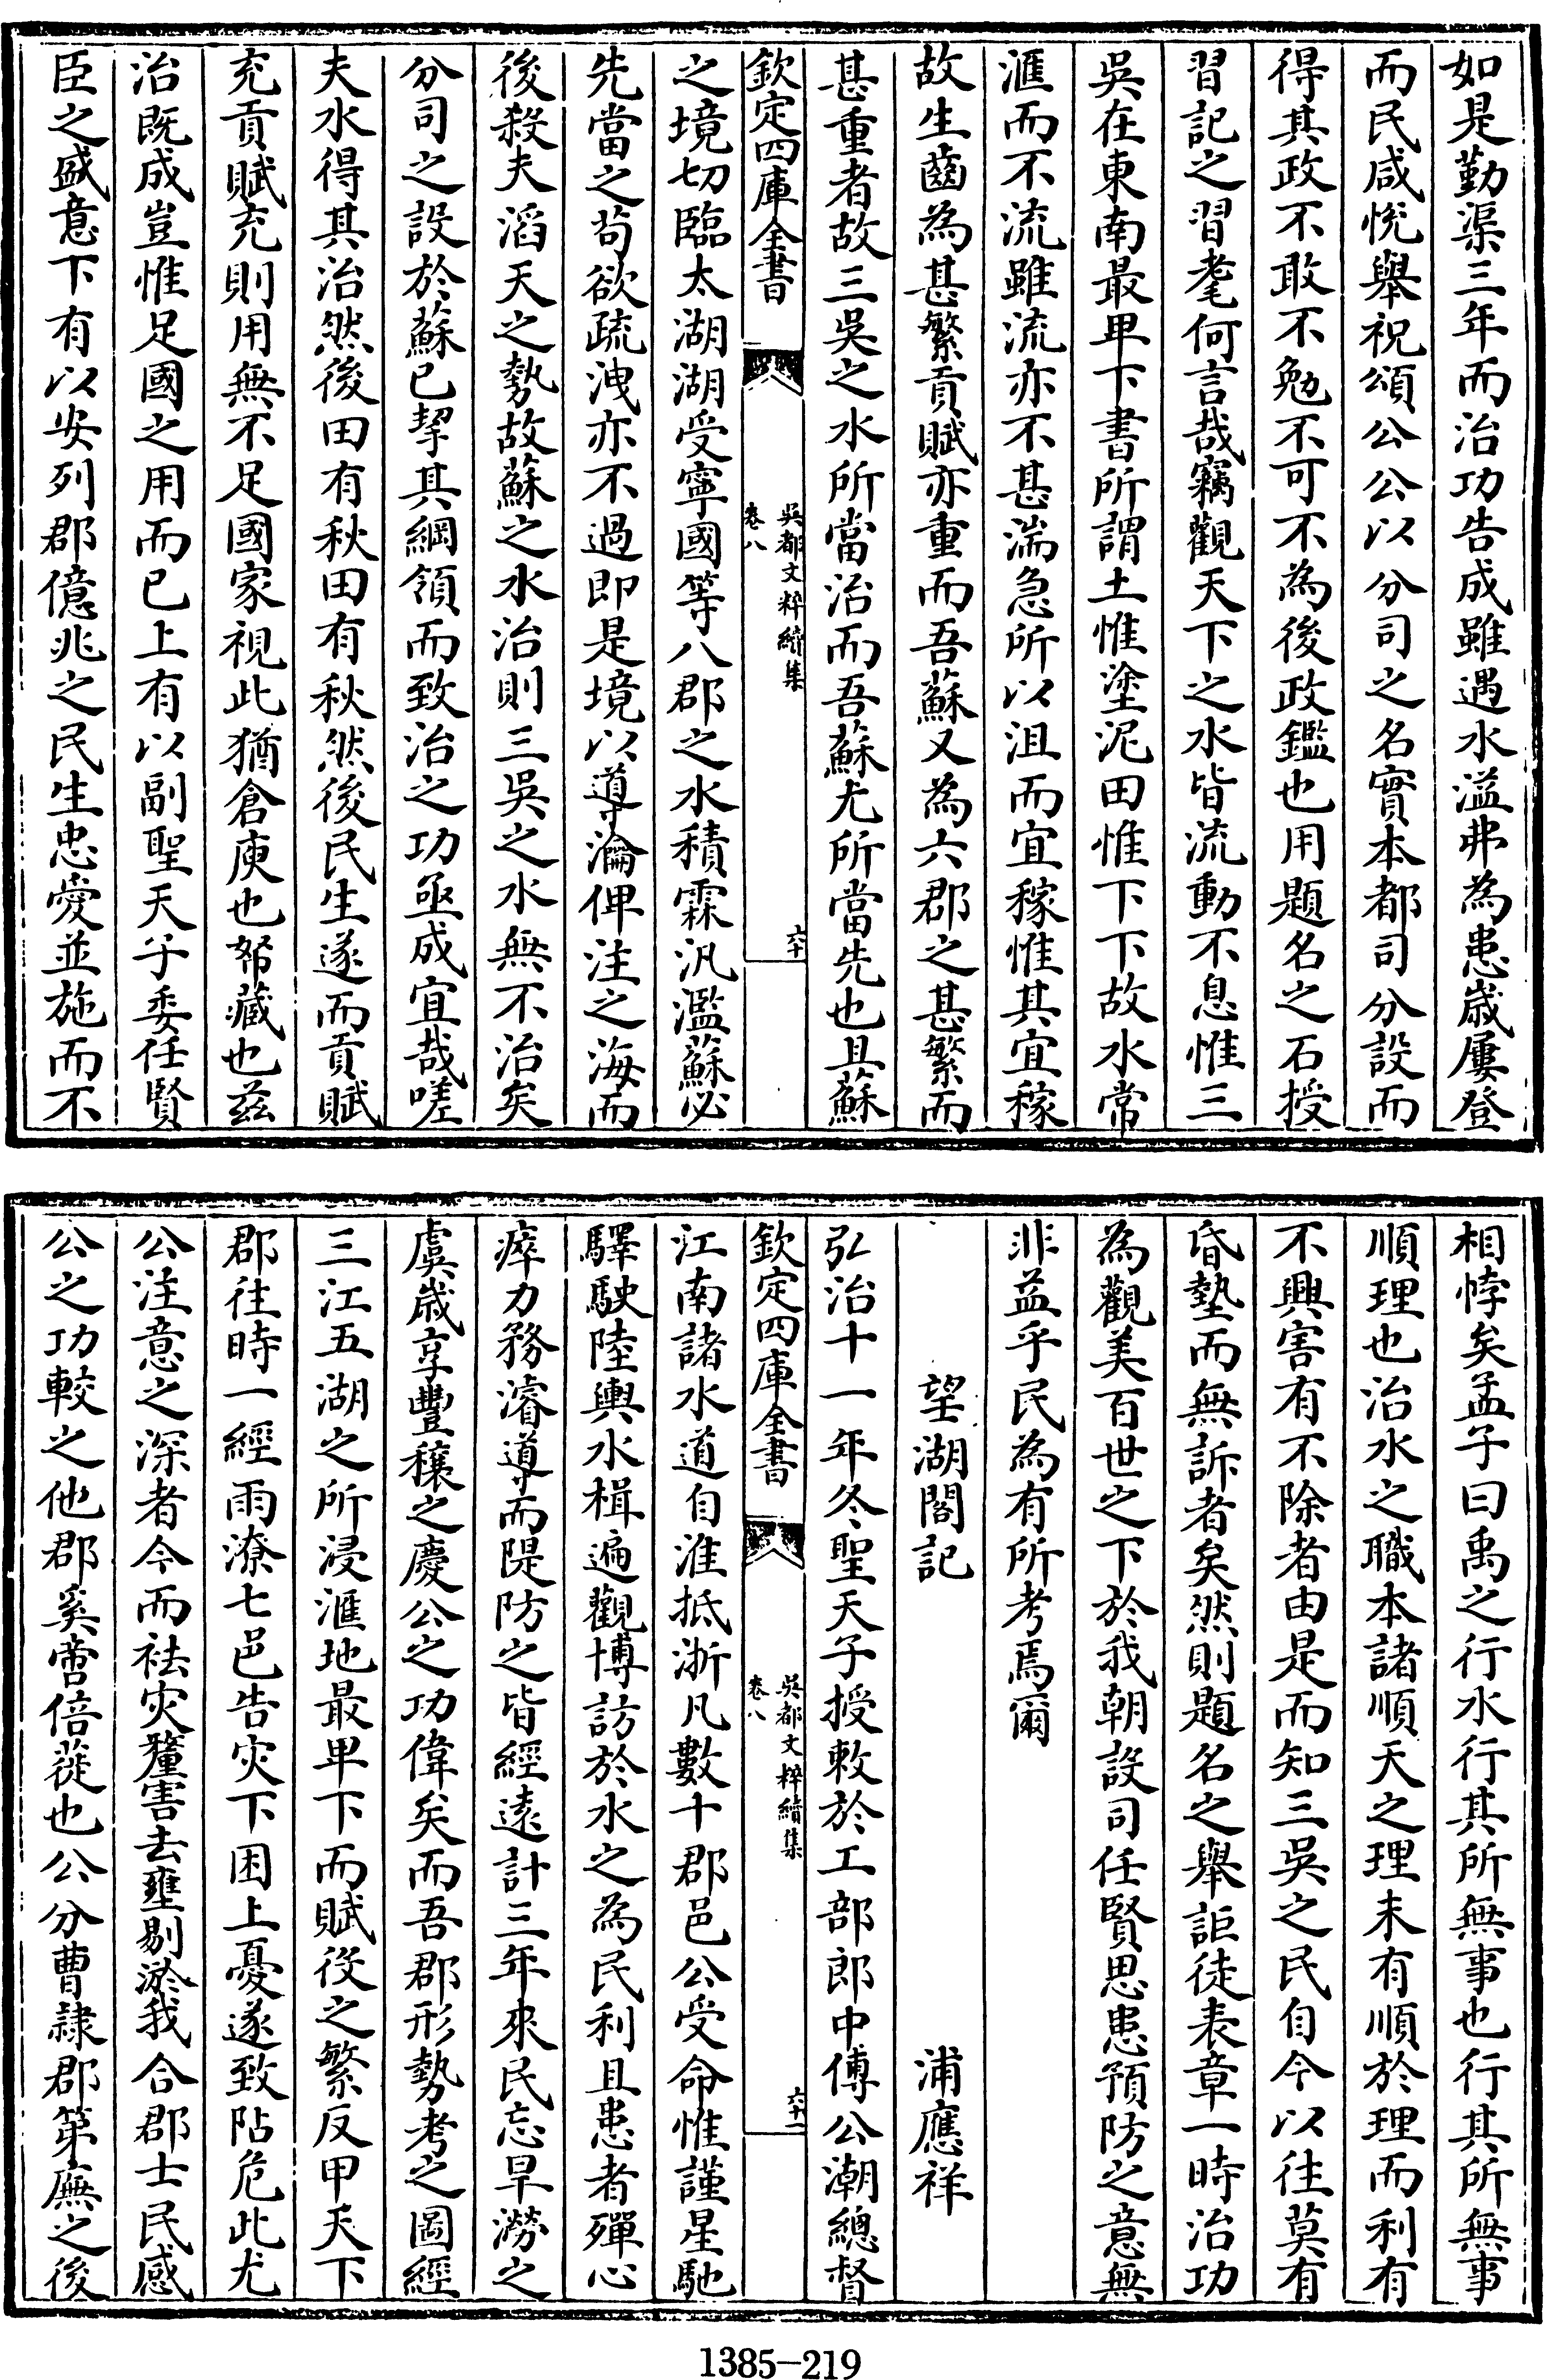 如是勤渠三年而治功告成雖遇水溢弗為患歲屢登
而民咸悅舉祝頌公公以分司之名實本都司分設而
得其政不敢不勉不可不為後政鑑也用題名之石授
習記之習耄何言哉竊觀天下之水皆流動不息惟三
吳在東南最卑下書所謂土惟塗泥田惟下下故水常
滙而不流雖流亦不甚湍急所以沮而宜稼惟其宜稼
故生齒為甚繁貢賦亦重而吾蘇又為六郡之甚繁而
甚重者故三吳之水所當治而吾蘇尤所當先也且蘇
欽定四庫全書
吳都文粹續集
卷八
六十
之境切臨太湖湖受寧國等八郡之水積霖汎濫蘇必
先當之苟欲疏洩亦不過即是境以導瀹俾注之海而
後殺夫滔天之勢故蘇之水治則三吳之水無不治矣
分司之設於蘇已挈其綱領而致治之功亟成宜哉嗟
夫水得其治然後田有秋田有秋然後民生遂而貢賦
充貢賦充則用無不足國家視此猶倉庾也帑藏也兹
治既成豈惟足國之用而已上有以副聖天子委任賢
臣之盛意下有以安列郡億兆之民生忠愛並施而不
相悖矣孟子曰禹之行水行其所無事也行其所無事
順理也治水之職本諸順天之理未有順於理而利有
不興害有不除者由是而知三吳之民自今以往莫有
昏墊而無訴者矣然則題名之舉詎徒表章一時治功
為觀美百世之下於我朝設司任賢思患預防之意無
非益乎民為有所考焉爾
望湖閣記 浦應祥
弘治十一年冬聖天子授敕於工部郎中傅公潮總督
欽定四庫全書
吳都文粹續集
卷八
六十一
江南諸水道自淮抵浙凡數十郡邑公受命惟謹星馳
驛駛陸輿水楫遍觀博訪於水之為民利且患者殫心
瘁力務濬導而隄防之皆經遠計三年來民忘旱澇之
虞歲享豐穰之慶公之功偉矣而吾郡形勢考之圖經
三江五湖之所浸滙地最卑下而賦役之繁反甲天下
郡往時一經雨潦七邑告灾下困上憂遂致阽危此尤
公注意之深者今而袪灾釐害去壅剔淤我合郡士民感
公之功較之他郡奚啻倍蓰也公分曹隷郡第廡之後
1385-219